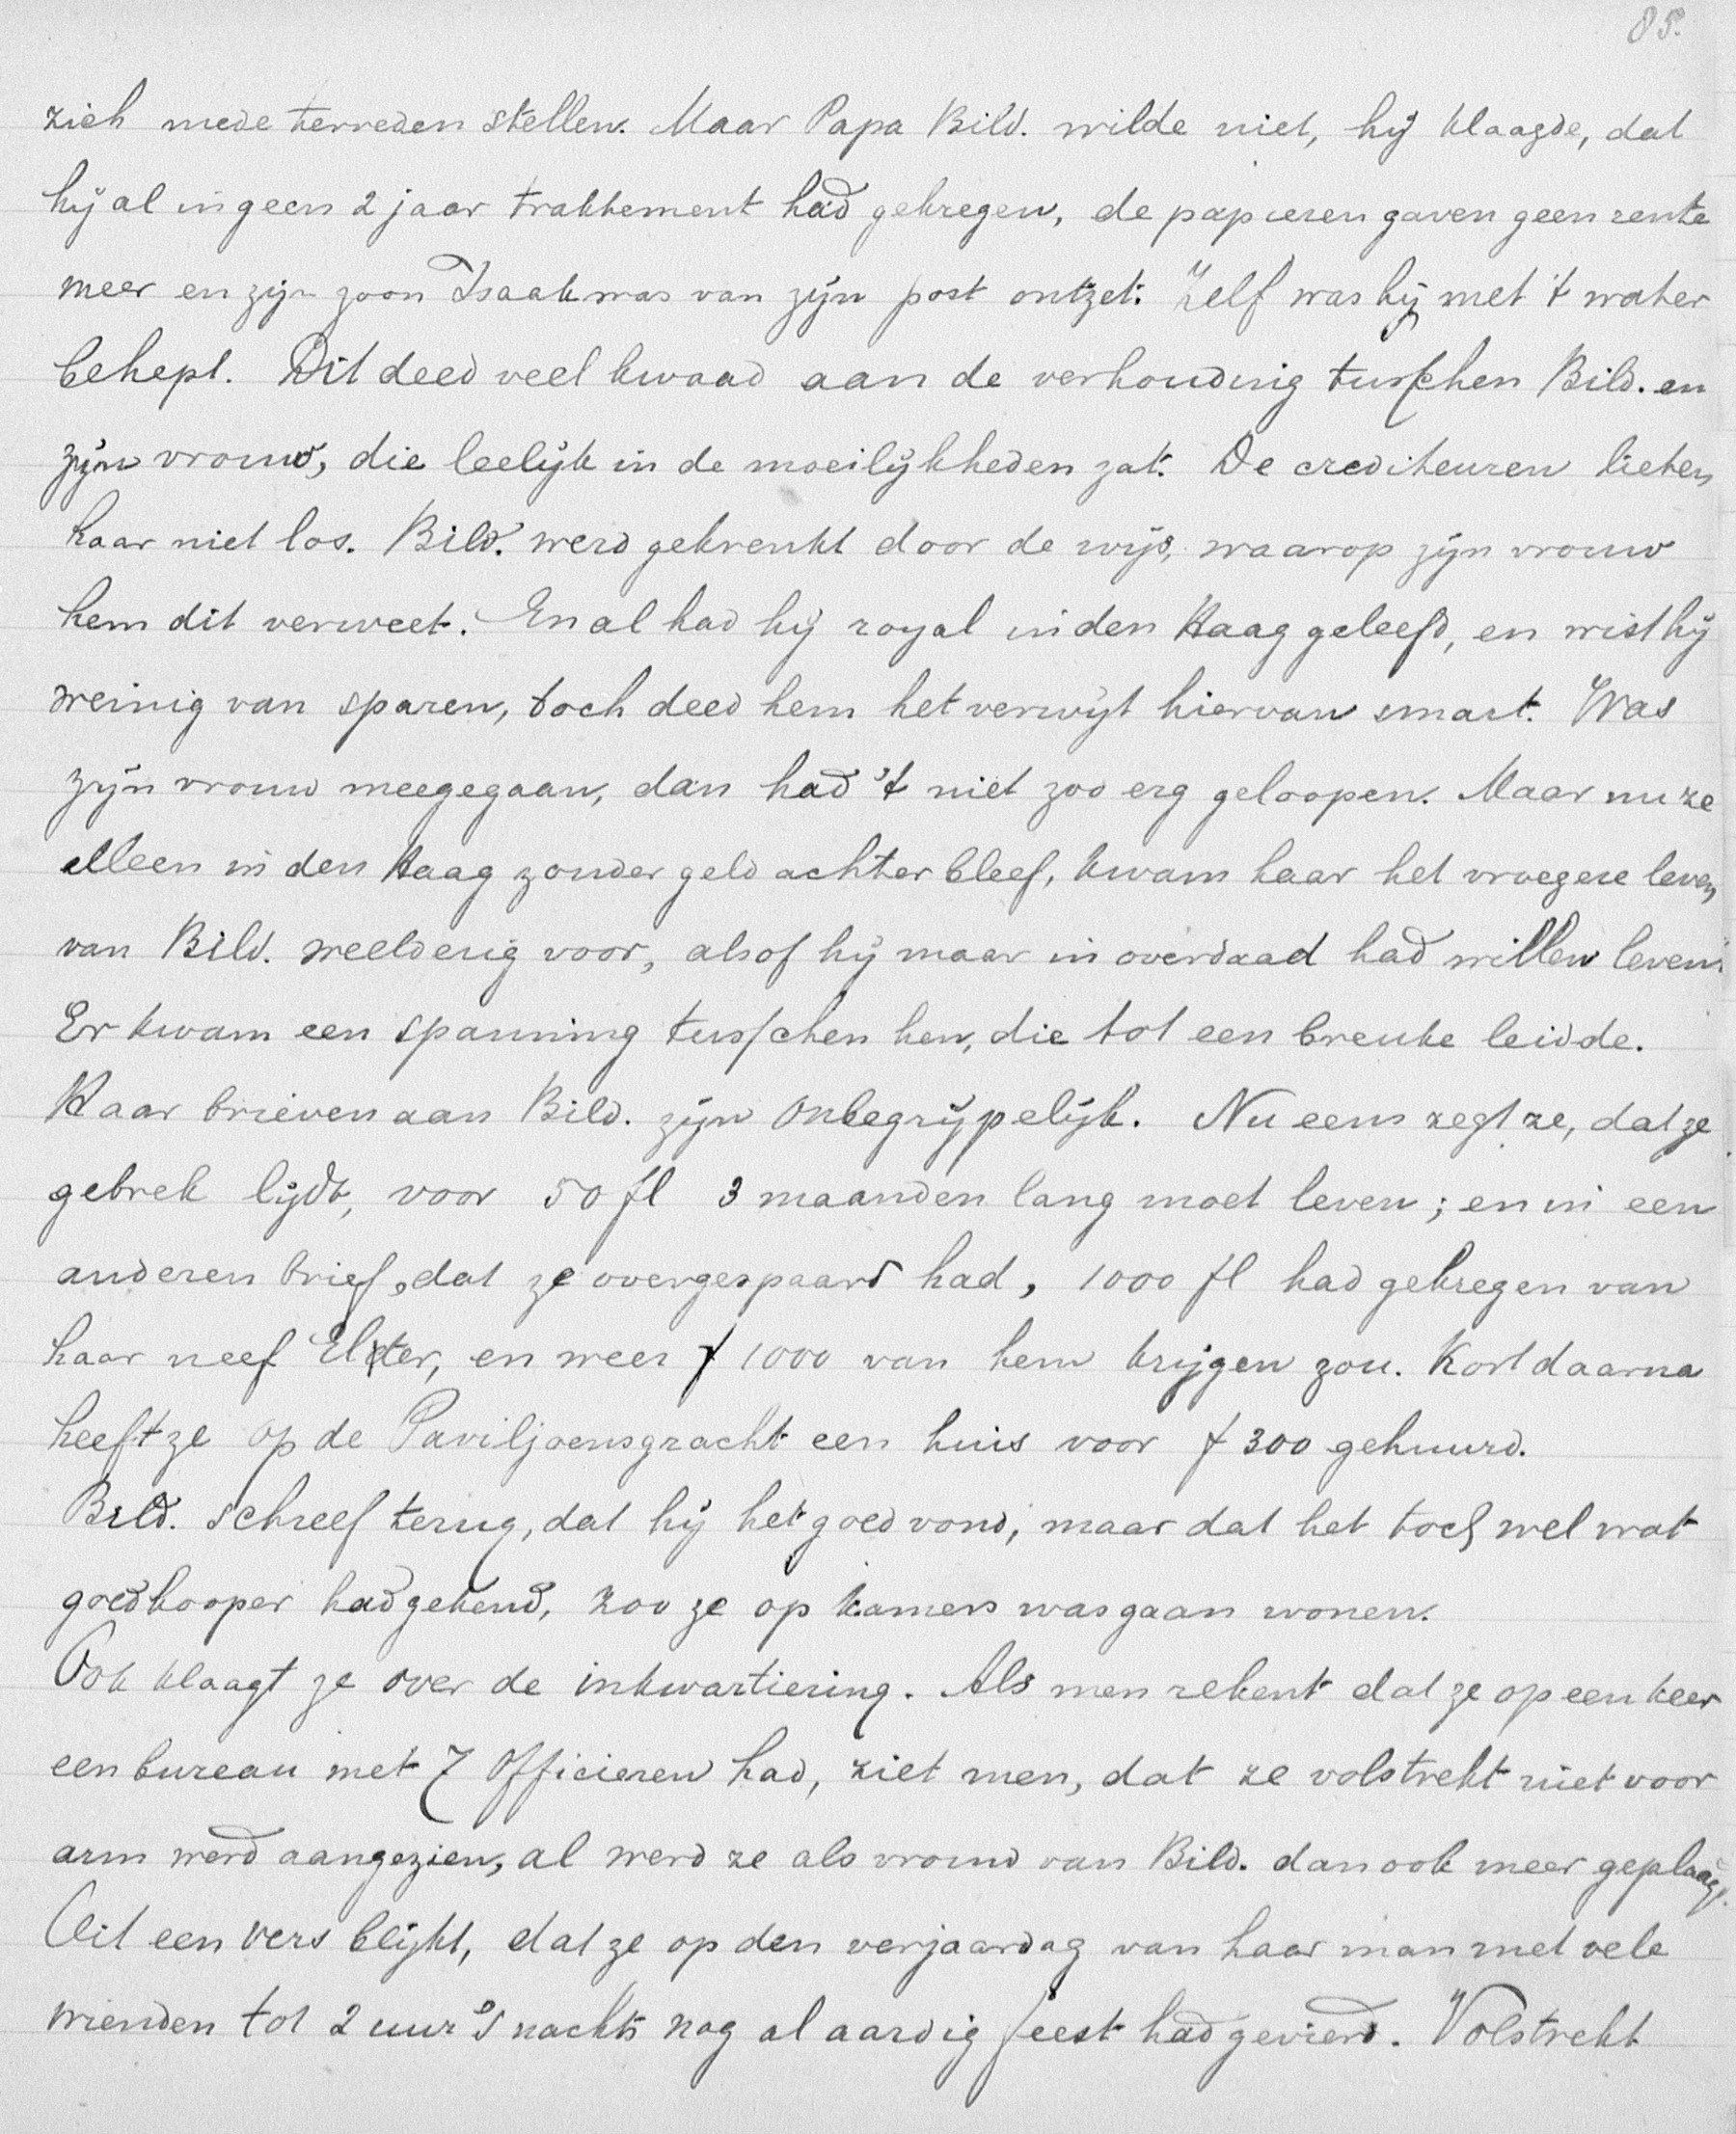 85.
zich mede tevreden stellen. Maar Papa Bild. wilde niet, hij klaagde, dat
hij al in geen 2 jaar traktement had gekregen, de papieren gaven geen rente
meer en zijn zoon Isaak was van zijn post ontzet. Zelf was hij met 't water
behept. Dit deed veel kwaad aan de verhouding tusschen Bild. en
zijn vrouw, die leelijk in de moeilijkheden zat. De crediteuren lieten
haar niet los. Bild. werd gekrenkt door de wijs, waarop zijn vrouw
hem dit verweet. En al had hij royal in den Haag geleefd, en wist hij
weinig van sparen, toch deed hem het verwijt hiervan smart. Was
zijn vrouw meegegaan, dan had 't niet zoo erg geloopen. Maar nu ze
alleen in den Haag zonder geld achter bleef, kwam haar het vroegere leven
van Bild. weelderig voor, alsof hij maar in overdaad had willen leven.
Er kwam een spanning tusschen hen, die tot een breuke leidde.
Haar brieven aan Bild. zijn onbegrijpelijk. Nu eens zegt ze, dat ze
gebrek lijdt, voor 50 fl 3 maanden lang moet leven; en in een
anderen brief, dat ze overgespaard had, 1000 fl had gekregen van
haar neef Elter, en weer f 1000 van hem krijgen zou. Kort daarna
heeft ze op de Paviljoensgracht een huis voor f 300 gehuurd.
Bild. schreef terug, dat hij het goed vond, maar dat het toch wel wat
goedkooper had gekend, zoo ze op kamers was gaan wonen.
Ook klaagt ze over de inkwartiering. Als men rekent dat ze op een keer
een bureau met 7 officieren had, ziet men, dat ze volstrekt niet voor
arm werd aangezien, al werd ze als vrouw van Bild. dan ook meer geplaagd.
Uit een vers blijkt, dat ze op den verjaardag van haar man met vele
vrienden tot 2 uur 's nachts nog al aardig feest had gevierd. Volstrekt